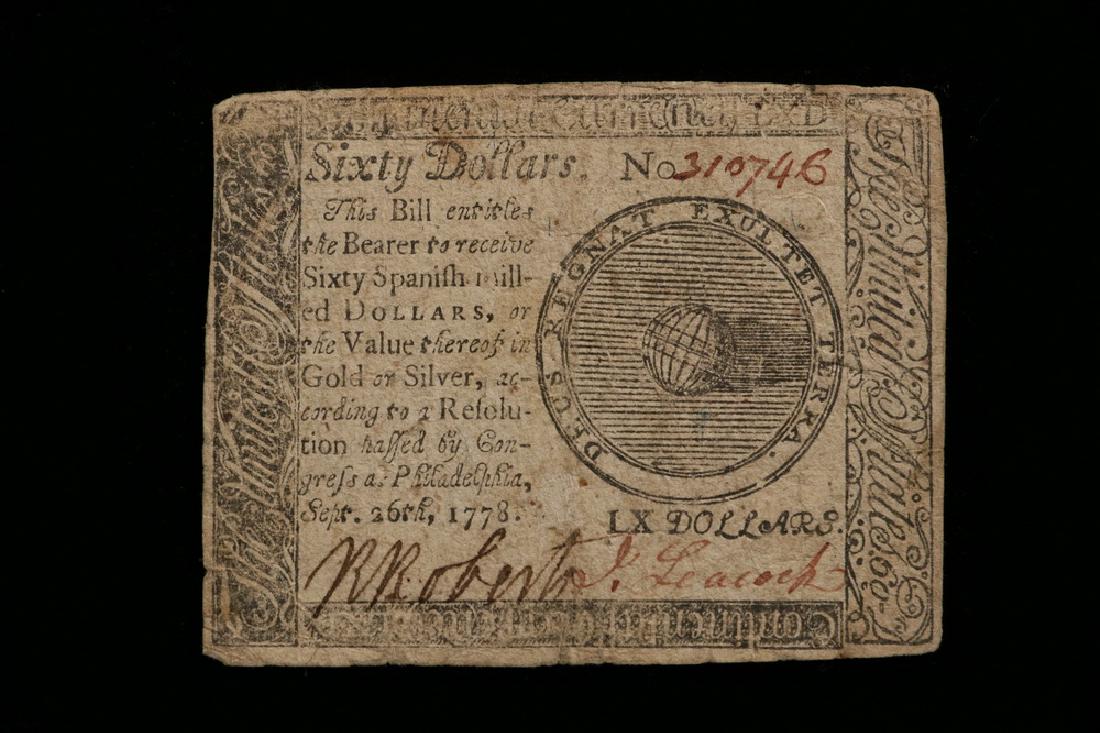 Continental Currency LXD
Sixty Dollars. No 310746
This Bill entitles
the Bearer to receive
Sixty Spaniſh mill-
ed DOLLARS, or
the Value thereof in
Gold or Silver, ac-
cording to a Reſolu-
tion paſſed by Con-
greſs at Philadelphia,
Sept. 26th, 1778.
DEUS REGNAT EXULTET TERRA.
LX DOLLARS.
R Roberts J. Leacock
The United States
The United States 60
Continental